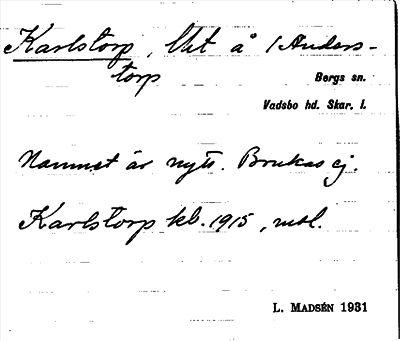 Karlstorp, Utt å 1 Anders-
torp
Bergs sn.
Vadsbo hd. Skar. l.
Namnet är nytt. Brukas ej.
Karlstorp kb. 1915, mtl.
L. MADSÉN 1931